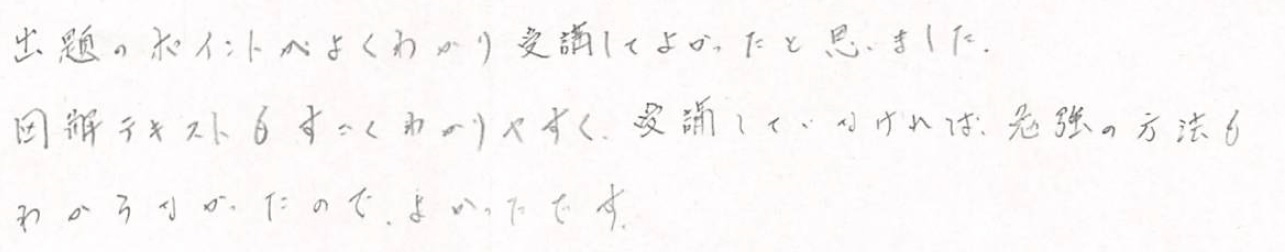 出題のポイントがよくわかり受講してよかったと思いました.
図解テキストもすごくわかりやすく、受講していなければ、勉強の方法も
わからなかったので、よかったです.